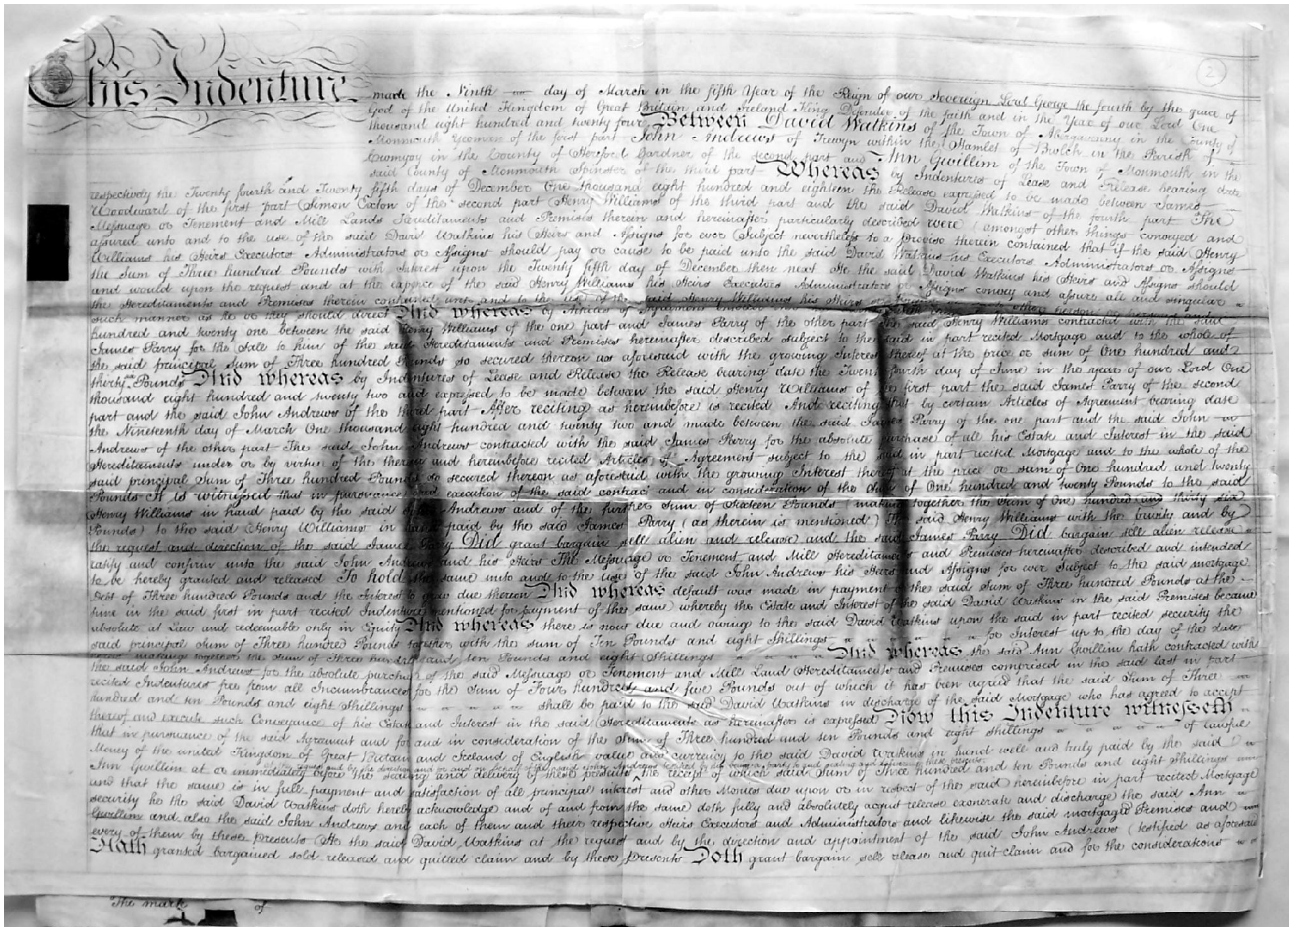 2
This Indenture made the Ninth day of March in the fifth Year of the Reign of our Sovereign Lord George the fourth by the grace of
God of the United Kingdom of Great Britain and Ireland King Defender of the faith and in the Year of our Lord One
thousand eight hundred and twenty four Between David Watkins of the Town of in the County of
Monmouth Yeoman of the first part John Andrews of Trewyn within the Hamlet of Bwlch in the Parish of
Cwmyoy in the County of Hereford Gardner of the second part and Ann Gwillim of the Town of Monmouth in the
said County of Monmouth Spinster of the third part Whereas by Indentures of Lease and Release bearing date
respectively the Twenty fourth and Twenty fifth days of December One thousand eight hundred and eighteen the Release expressed to be made between James
Woodward of the first part Simon Exton of the second part Henry Williams of the third part and the said David Watkins of the fourth part The
Messuage or Tenement and Mill Lands Hereditaments and Premises therein and hereinafter particularly described were (amongst other things) conveyed and
assured unto and to the use of the said David Watkins his Heirs and Assigns for ever Subject nevertheless to a proviso therein contained that if the said Henry
Williams his Heirs Executors Administrators or Assigns should pay or cause to be paid unto the said David Watkins his Executors Administrators or Assigns
the Sum of Three hundred Pounds with Interest upon the Twenty fifth day of December then next He the said David Watkins his Heirs and Assigns should
and would upon the request and at the expence of the said Henry Williams his Heirs Executors Administrators or Assigns convey and assure all and singular
the Hereditaments and Premises therein contained unto and to the use of the said Henry Williams his Heirs or
such manner as he or they should direct And whereas by Articles of Agreement
hundred and twenty one between the said Henry Williams of the one part and James Parry of the other part the said Henry Williams contracted with the said
James Parry for the Sale to him of the said Hereditaments and Premises hereinafter described subject to the said in part recited Mortgage and to the whole of
the said principal Sum of Three hundred Pounds so secured thereon as aforesaid with the growing Interest thereof at the price or sum of One hundred and
thirty Pounds And whereas by Indentures of Lease and Release the Release bearing date the Twenty fourth day of June in the year of our Lord One
thousand eight hundred and twenty two and expressed to be made between the said Henry Williams of the first part the said James Parry of the second
part and the said John Andrews of the third part After reciting as hereinbefore is recited And reciting that by certain Articles of Agreement bearing date
the Nineteenth day of March One thousand eight hundred and twenty two and made between the said James Parry of the one part and the said John
Andrews of the other part The said John Andrews contracted with the said James Parry for the absolute purchase of all his Estate and Interest in the said
Hereditaments under or by virtue of the therein and hereinbefore recited Articles of Agreement subject to the said in part recited Mortgage and to the whole of the
said principal Sum of Three hundred Pounds so secured thereon as aforesaid with the growing Interest thereof at the price or sum of One hundred and twenty
Pounds It is witnessed that in pursuance and execution of the said contract and in consideration of the Sum of One hundred and twenty Pounds to the said
Henry Williams in hand paid by the said John Andrews and of the further Sum of Sixteen Pounds making together the Sum of One hundred and thirty six
Pounds) to the said Henry Williams in hand paid by the said James Parry (as therein is mentioned) He the said Henry Williams with the privity and by
the request and direction of the said James Parry Did grant bargain sell alien and release and the said James Parry Did bargain sell alien release
ratify and confirm unto the said John Andrews and his Heirs The Messuage or Tenement and Mill Hereditaments and Premises hereinafter described and intended
to be hereby granted and released To hold the same unto and to the use of the said John Andrews his Heirs and Assigns for ever Subject to the said mortgage
Debt of Three hundred Pounds and the Interest to grow due thereon And whereas default was made in payment of the said Sum of Three hundred Pounds at the
time in the said first in part recited Indenture mentioned for payment of the same whereby the Estate and Interest of the said David Watkins in the said Premises became
absolute at Law and redeemable only in Equity And whereas there is now due and owing to the said David Watkins upon the said in part recited security the
said principal Sum of Three hundred Pounds together with the sum of Ten Pounds and eight Shillings for Interest up to the day of the date
making together the sum of Three hundred and ten Pounds and eight Shillings And whereas the said Ann Gwillim hath contracted with
the said John Andrews for the absolute purchase of the said Messuage or Tenement and Mill Land Hereditaments and Premises comprised in the said last in part
recited Indentures free from all Incumbrances for the Sum of Four hundred and five Pounds out of which it has been agreed that the said Sum of Three
hundred and ten Pounds and eight Shillings shall be paid to the said David Watkins in discharge of the said Mortgage who has agreed to accept
thereof and execute such Conveyance of his Estate and Interest in the said Hereditaments as hereinafter is expressed Now this Indenture witnesseth
that in pursuance of the said Agreement and for and in consideration of the Sum of Three hundred and ten Pounds and eight shillings of lawful
Money of the united Kingdom of Great Britain and Ireland of English value and currency to the said David Watkins in hand well and truly paid by the said
Ann Gwillim at or immediately before the sealing and delivery of these presents the receipt of which said Sum of Three hundred and ten Pounds and eight Shillings
and that the same is in full payment and satisfaction of all principal interest and other Monies due upon or in respect of the said hereinbefore in part recited Mortgage
security he the said David Watkins doth hereby acknowledge and of and from the same doth fully and absolutely acquit release exonerate and discharge the said Ann
Gwillim and also the said John Andrews and each of them and their respective Heirs Executors and Administrators and likewise the said mortgaged Premises and
every of them by these presents (He the said David Watkins at the request and by the direction and appointment of the said John Andrews (testified as aforesaid
Hath granted bargained sold released and quitted claim and by these presents Doth grant bargain sell release and quit claim and for the considerations
The mark of